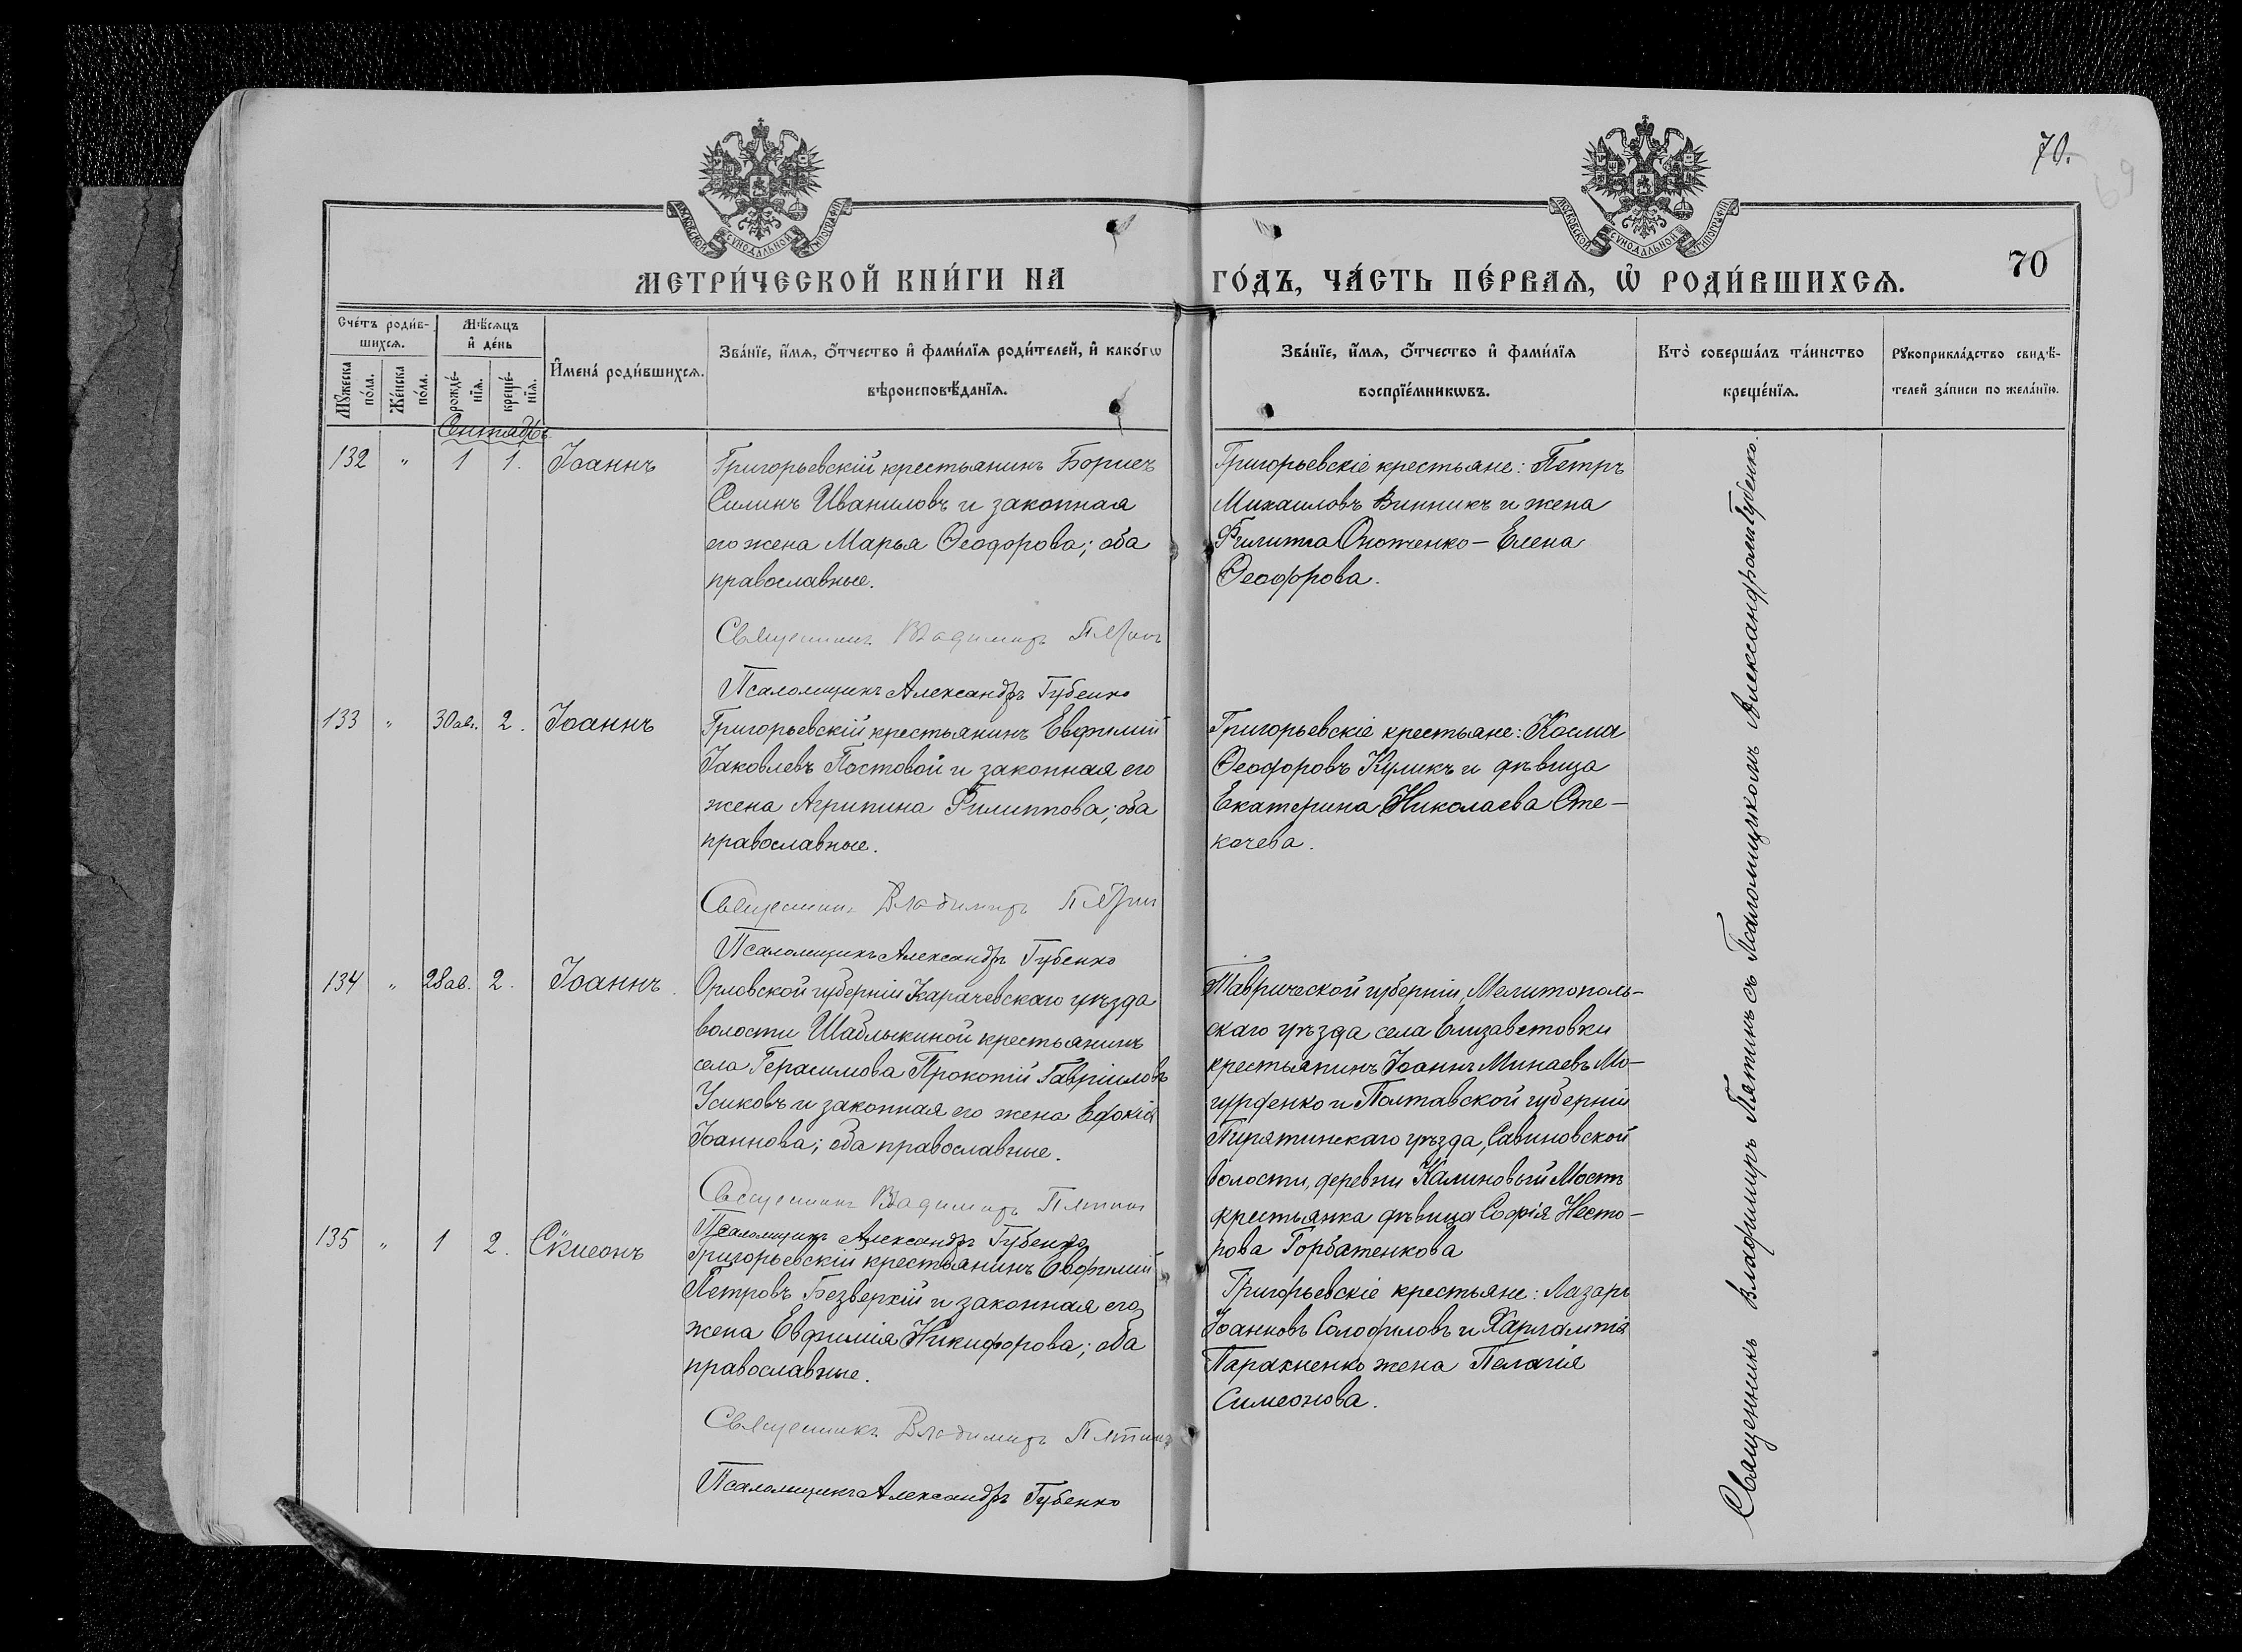 70.
69
МОСКОВСКОЙ СУНОДАЛЬНОЙ ТИПОГРАФІИ
МОСКОВСКОЙ СУНОДАЛЬНОЙ ТИПОГРАФІИ
МЕТРИ́ЧЕСКОЙ КНИ́ГИ НА
ГО́ДЪ, ЧА́СТЬ ПЕ́РВАѦ, Ѡ҆ РОДИ́ВШИХСѦ.
70
Сче́тъ роди́в-
шихсѧ.
Мꙋ́жеска
по́ла.
Же́нска
по́ла.
Мѣ́сѧцъ
и҆ де́нь
рожде́-
нїѧ.
креще́-
нїѧ.
И҆мена̀ роди́вшихсѧ.
Зва́нїе, и҆́мѧ, ѻ҆́тчество и҆ фами́лїѧ роди́телей, и҆ како́гѡ
вѣроисповѣ́данїѧ.
Зва́нїе, и҆́мѧ, ѻ҆́тчество и҆ фами́лїѧ
воспрїе́мникѡвъ.
Кто̀ соверша́лъ та́инство
креще́нїѧ.
Рꙋкоприкла́дство свидѣ́-
телей за́писи по жела́нїю.
Сентябрь
132 " 1 1. Іоаннъ
Григорьевскій крестьянинъ Борисъ
Силинъ Иваниловъ и законная
его жена Марья Ѳеодорова; оба
православные.
Священникъ Владимиръ Пятинъ
Псаломщикъ Александръ Губенко
Григорьевскіе крестьяне: Петръ
Михаиловъ Винникъ и жена
Филиппа Оноженко – Елена
Ѳеодорова.
133 " 30 ав. 2. Іоаннъ
Григорьевскій крестьянинъ Евфимій
Іаковлевъ Постовой и законная его
жена Агрипина Филиппова; оба
православные.
Священникъ Владимиръ Пятинъ
Псаломщикъ Александръ Губенко
Григорьевскіе крестьяне: Косма
Ѳеодоровъ Куликъ и дѣвица
Екатерина Николаева Сте-
качева.
134 " 28 ав. 2. Іоаннъ.
Орловской губерніи Карачевскаго уѣзда
волости Шаблыкиной крестьянинъ
села Герасимова Прокопій Гавріиловъ
Усиковъ и законная его жена Евдокія
Іоаннова; оба православные.
Священникъ Владимиръ Пятинъ
Псаломщикъ Александръ Губенко
Таврической губерніи, Мелитополь-
скаго уѣзда села Елизаветовки
крестьянинъ Іоаннъ Минаевъ Мо-
гурденко и Полтавской губерніи
Пирятинскаго уѣзда, Савиновской
волости, деревни Калиновый Мостъ
крестьянка дѣвица Софія Несто-
рова Горбатенкова
135 " 1 2. Сѵмеонъ
Григорьевскій крестьянинъ Евфимій
Петровъ Безверхій и законная его
жена Евфимія Никифорова; оба
православные.
Священникъ Владимиръ Пятинъ
Псаломщикъ Александръ Губенко
Григорьевскіе крестьяне: Лазарь
Іоанновъ Солодиловъ и Харлампія
Парахненко жена Пелагія
Симеонова.
Священникъ Владимиръ Пятинъ съ Псаломщикомъ Александромъ Губенко.